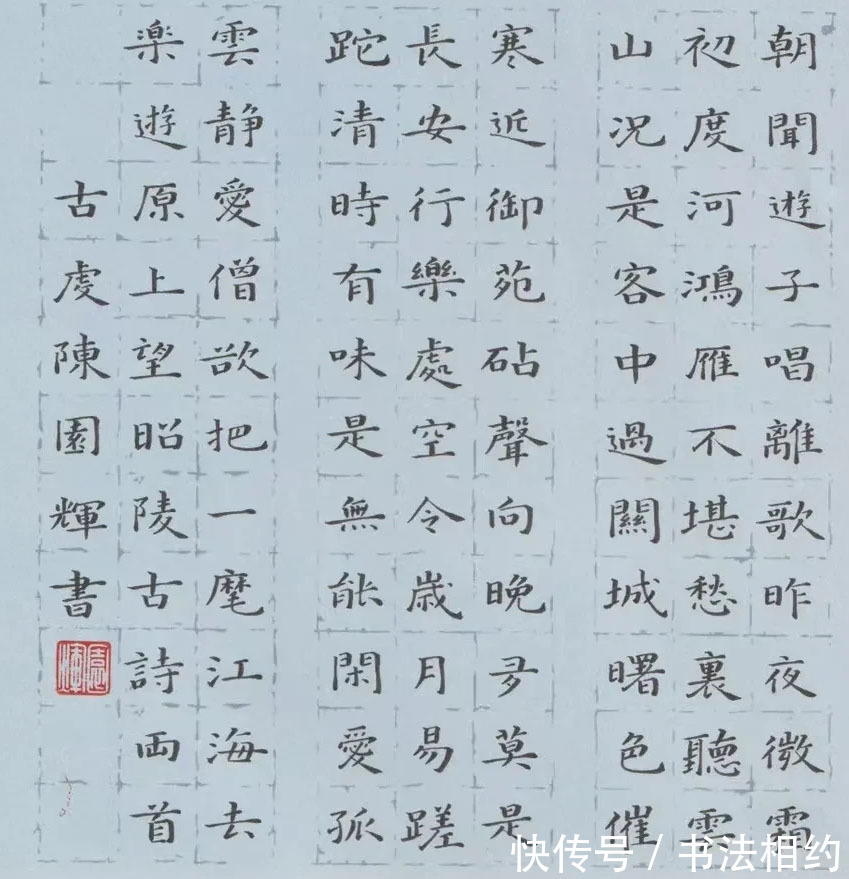 朝聞遊子唱離歌昨夜微霜
初度河鴻雁不堪愁裏聽雲
山況是客中過關城曙色催
寒近御苑砧聲向晚多莫是
長安行樂處空令歲月易蹉
跎清時有味是無能閑愛孤
雲靜愛僧欲把一麾江海去
楽遊原上望昭陵古詩両首
古虞陳園輝書
園輝
快传号 / 书法相约